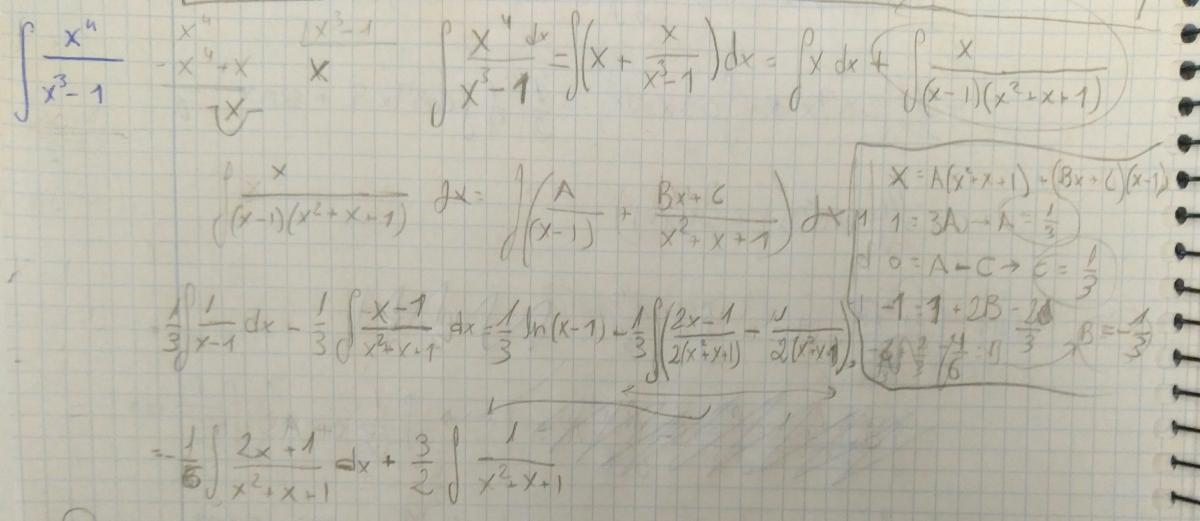 ∫ x⁴/(x³-1)
x⁴ | x³-1
-x⁴+x | x
x
∫ x⁴/(x³-1) dx = ∫(x + x/(x³-1)) dx = ∫x dx + ∫ x/((x-1)(x²+x+1))
∫ x/((x-1)(x²+x+1)) dx = ∫(A/(x-1) + (Bx+C)/(x²+x+1)) dx
x = A(x²+x+1) + (Bx+C)(x-1)
1 = 3A → A = 1/3
0 = A - C → C = 1/3
-1 = 1 + 2B - 2/3
B = -1/3
= 1/3 ∫ 1/(x-1) dx - 1/3 ∫ (x-1)/(x²+x+1) dx = 1/3 ln(x-1) - 1/3 ∫((2x-1)/(2(x²+x+1)) - 1/(2(x²+x+1)))
= -1/6 ∫ (2x+1)/(x²+x+1) dx + 3/2 ∫ 1/(x²+x+1)